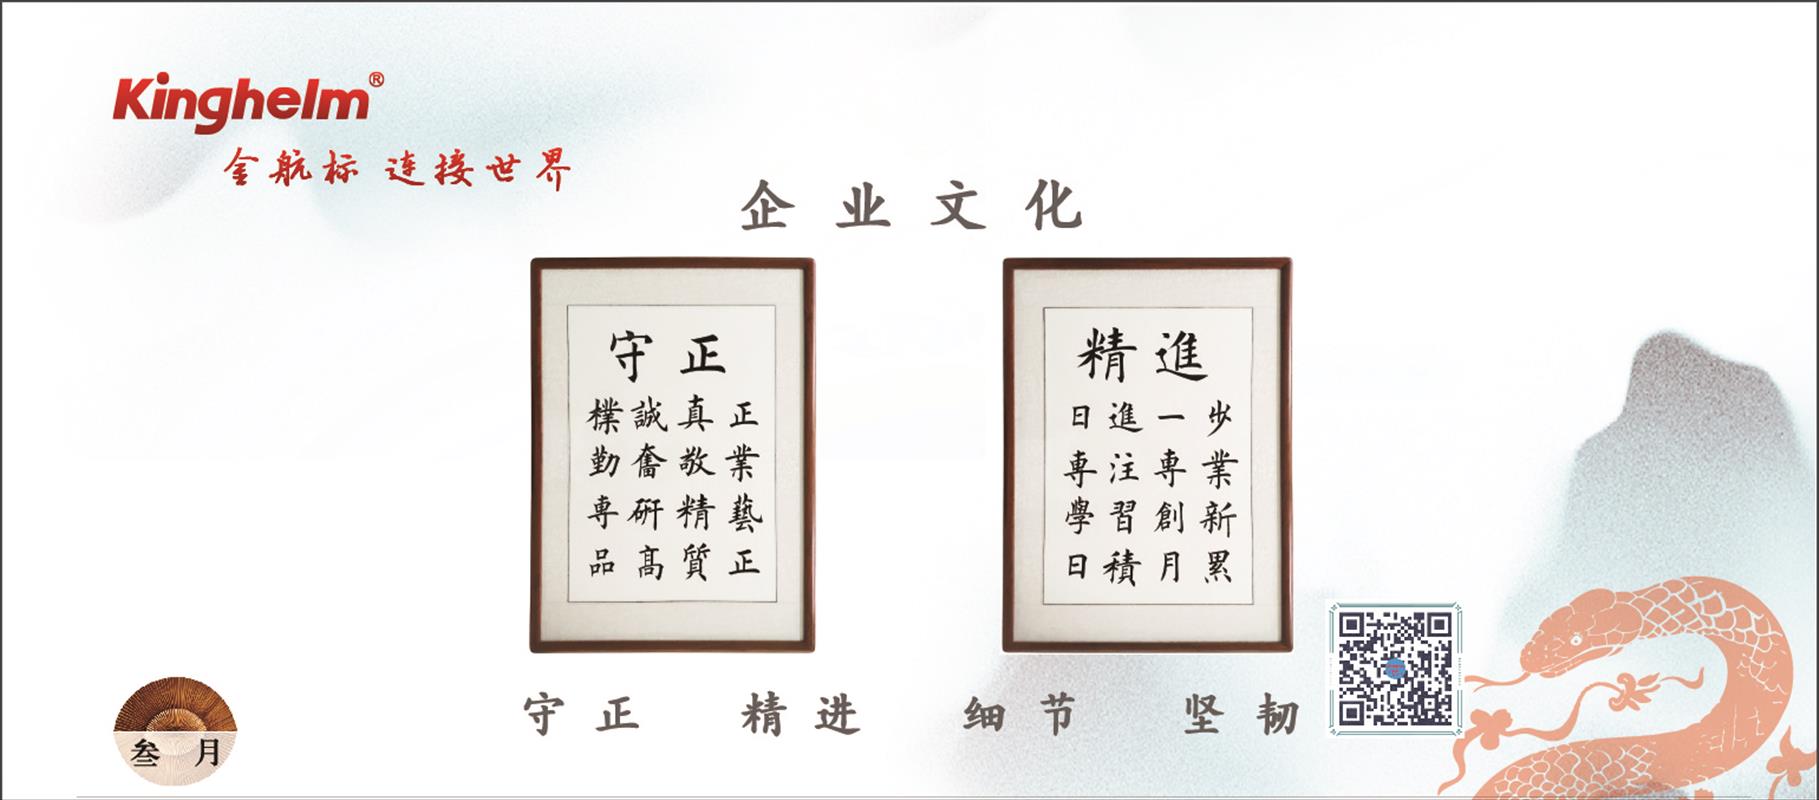 Kinghelm®
金航标 连接世界
企业文化
守正
樸誠真正
勤奮敬業
専研精藝
品髙質正
精進
日進一步
専注専業
學習創新
日積月累
守正 精进 细节 坚韧
叁月